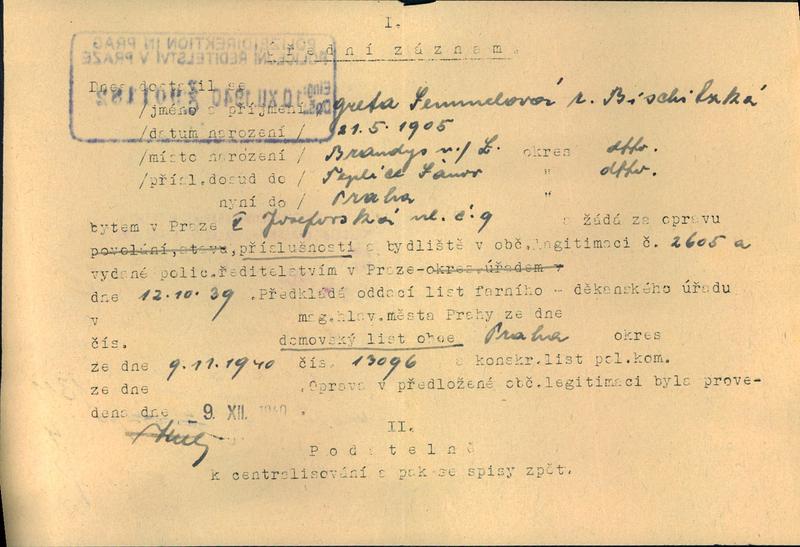 I.
Úřední záznam.
POLIZEIDIREKTION IN PRAG
POLICEJNÍ ŘEDITELSTVÍ V PRAZE
10 XII 1940
Dnes dostavil se
/jméno a příjmení Greta Semmelová r. Bischitzká
/datum narození / 21.5.1905
/místo narození / Brandýs n./L. okres dtto.
/přísl.dosud do / Teplice Šanov " dtto.
nyní do / Praha "
bytem v Praze V Josefovská ul. č. 9 a žádá za opravu
povolání,stavu,příslušnosti a bydliště v obč.legitimaci č. 2605 a
vydané polic.ředitelstvím v Praze-okres.úřadem v
dne 12.10.39 .Předkládá oddací list farního - děkanského úřadu
v mag.hlav.města Prahy ze dne
čís. domovský list obce Praha okres
ze dne 9.11.1940 čís. 13096 a konskr.list pol.kom.
ze dne .Oprava v předložené obč.legitimaci byla prove-
dena dne 9. XII. 1940
II.
Podatelně
k centralisování a pak se spisy zpět.